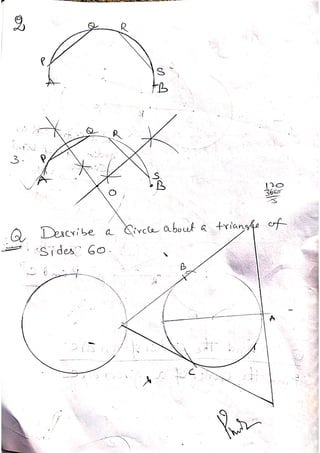 2
Q R
P
S
A B
3.
Q R
P
S
A B
O
120
Q Describe a Circle about a triangle of
Sides 60.
B
A
C